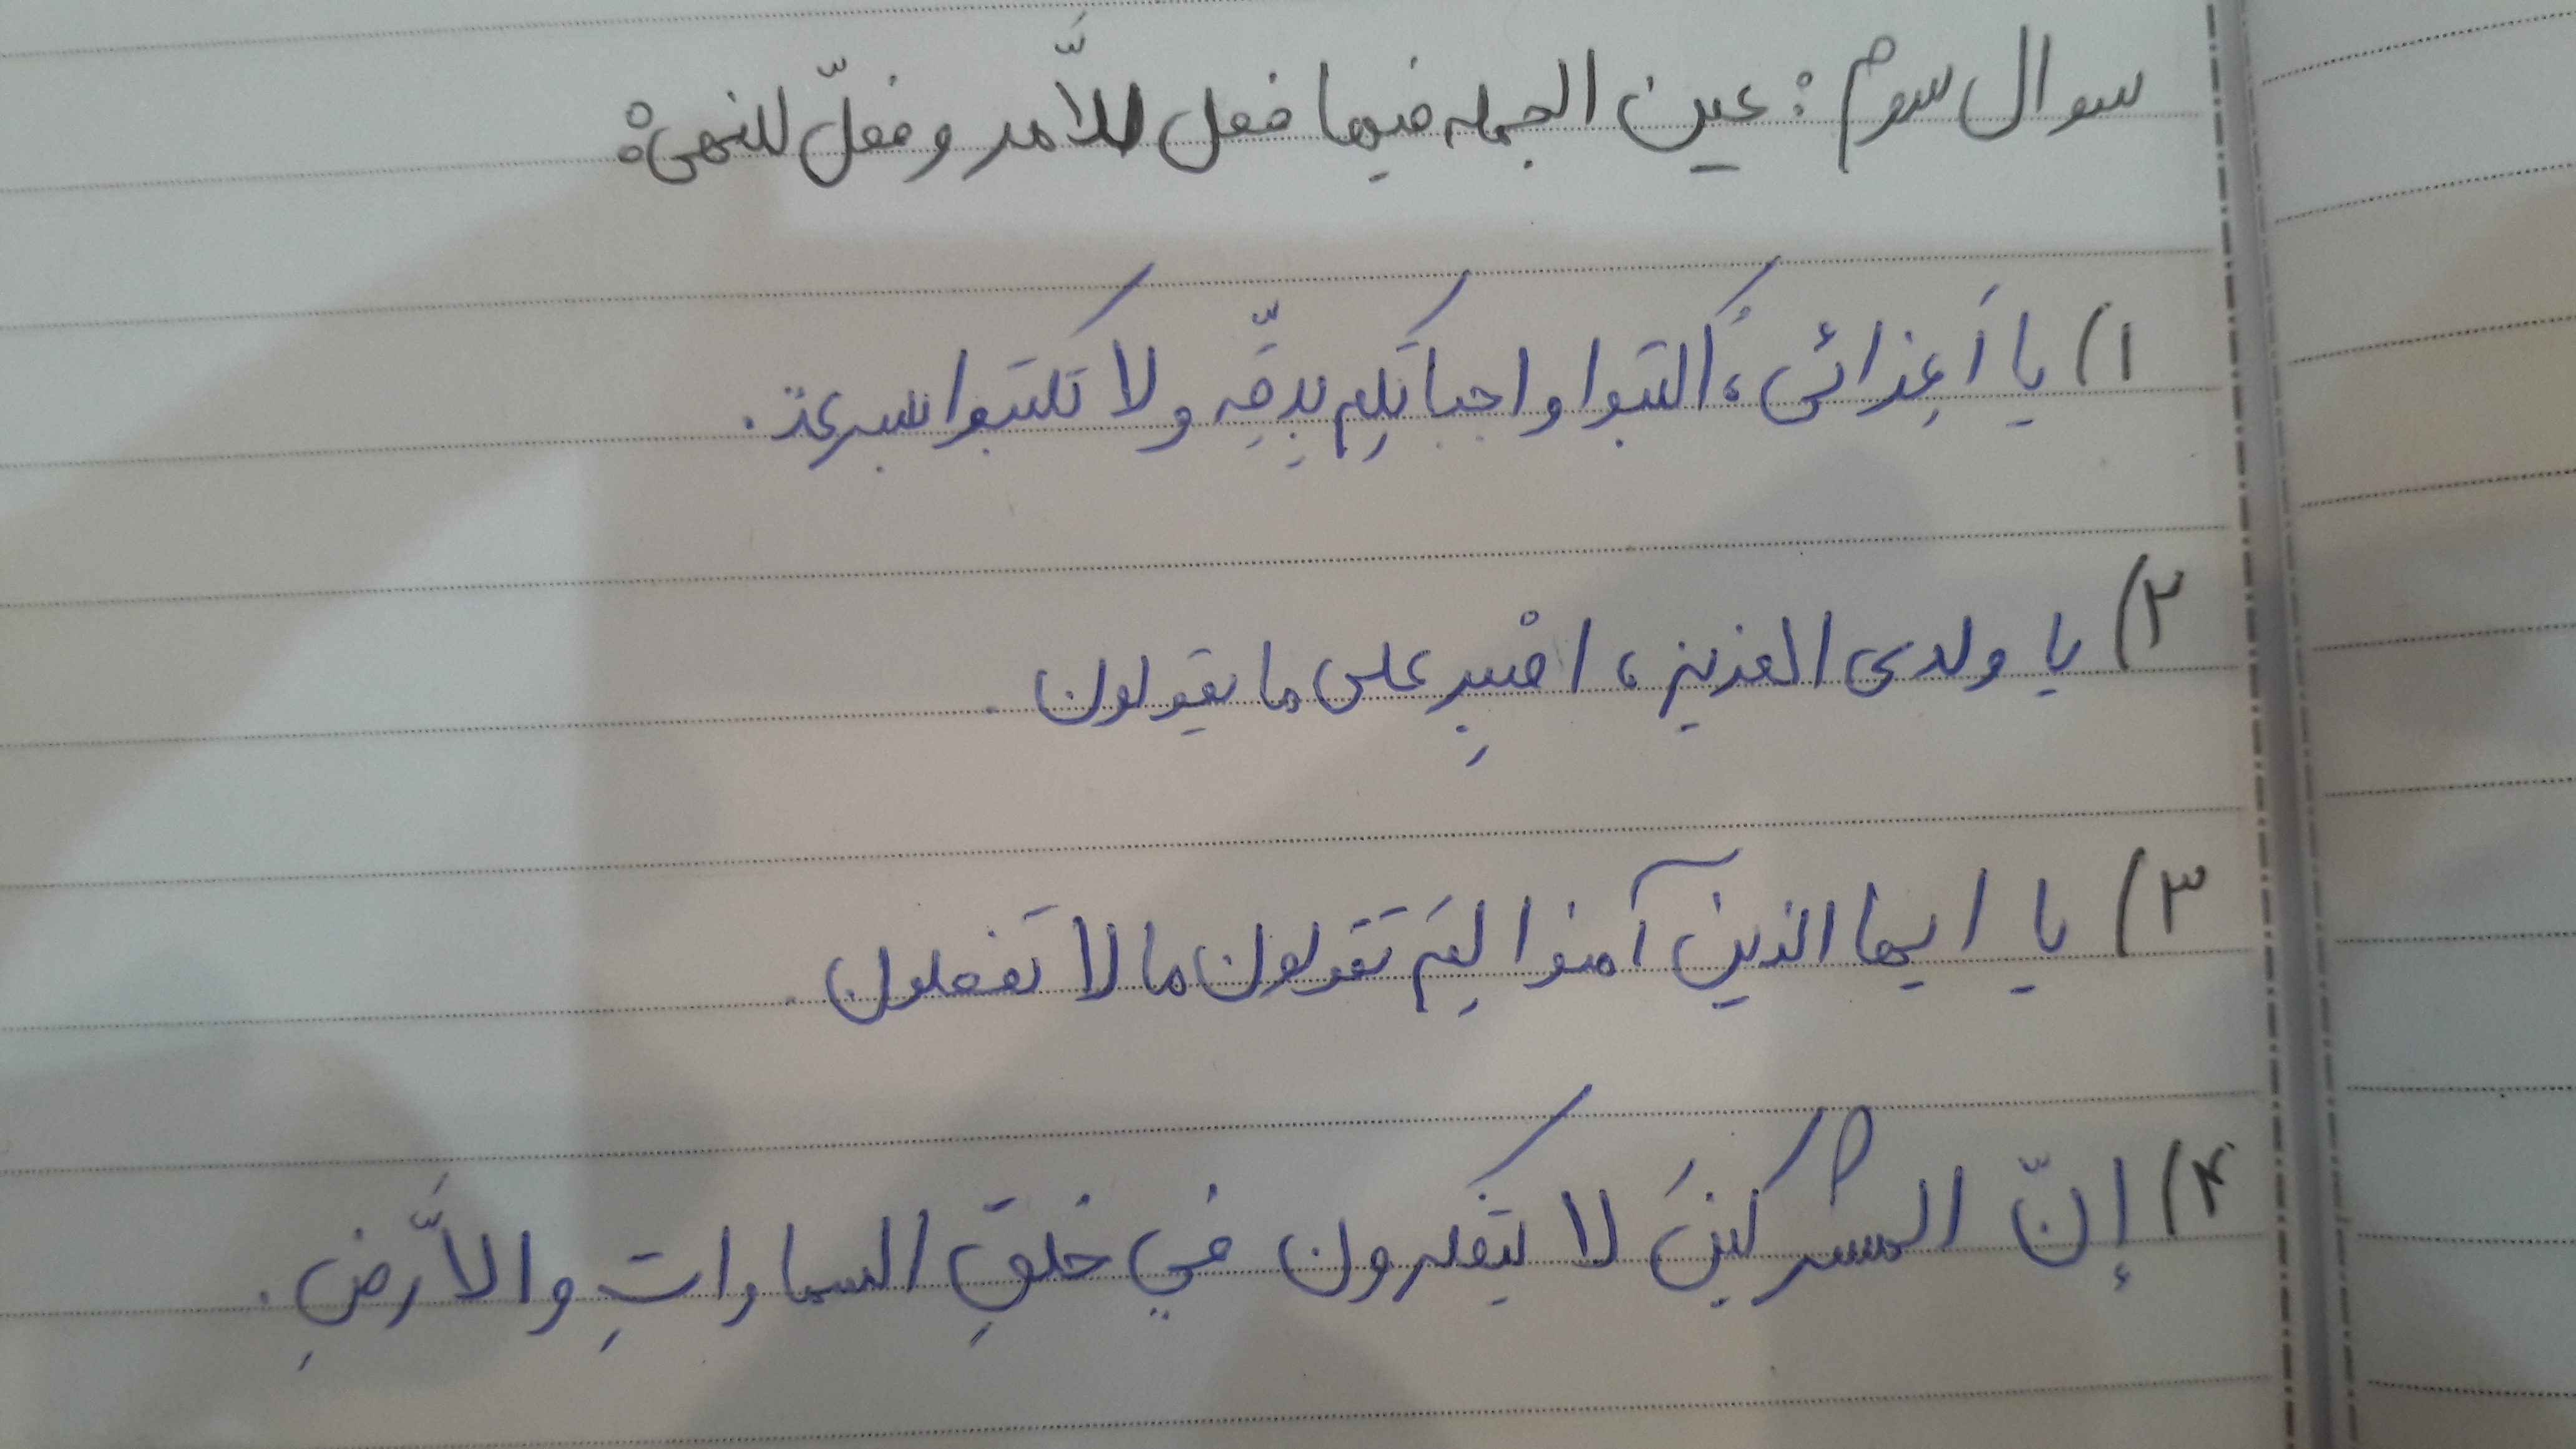 سوال سوم: عین الجمله فیها فعل للأَّمر و فعلّ للنهی:
۱) یا أَعِزائی، اُکتبوا واجباتَکِم بِدِقَّهِ و لا تَکتبوا بسرعة.
۲) یا ولدی العزیز، اصْبِر علی ما یقولون.
۳) یا ایها الذین آمنوا لِمَ تَقولون ما لا تَفعلون.
۴) إنّ المشرکینَ لا یَتفکرون في خلقِ السماواتِ والأَّرضِ.